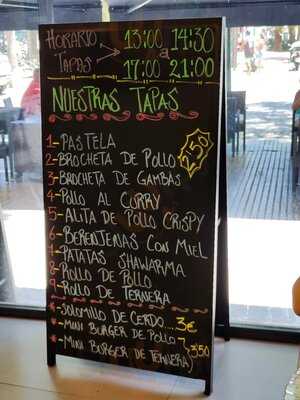 HORARIO > 13:00 A 14:30
TAPAS > 17:00 21:00
NUESTRAS TAPAS
1-PASTELA
2-BROCHETA DE POLLO 2,50
3-BROCHETA DE GAMBAS
4-POLLO AL CURRY
5-ALITA DE POLLO CRISPY
6-BERENJENAS CON MIEL
7-PATATAS SHAWARMA
8-ROLLO DE POLLO
9-ROLLO DE TERNERA
*-SOLOMILLO DE CERDO... 3€
*-MINI BURGER DE POLLO
*-MINI BURGER DE TERNERA} 3,50